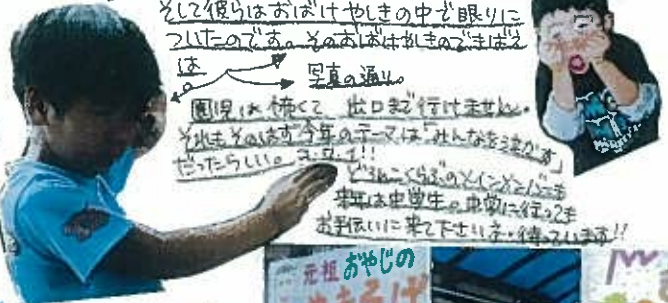 そして彼らはおばけやしきの中で眠りに
ついたのです。そのおばけやしきのできばえ
は。
写真の通り。
園児は怖くて、出口まで行けません。
それもそのはず今年のテーマは「みんなを泣かす」
だったらしい。
どろんこくらぶのメインメンバーも
来年は中学生。中学に行っても
お手伝いに来て下さいネ・待っています!!
元祖 おやじの